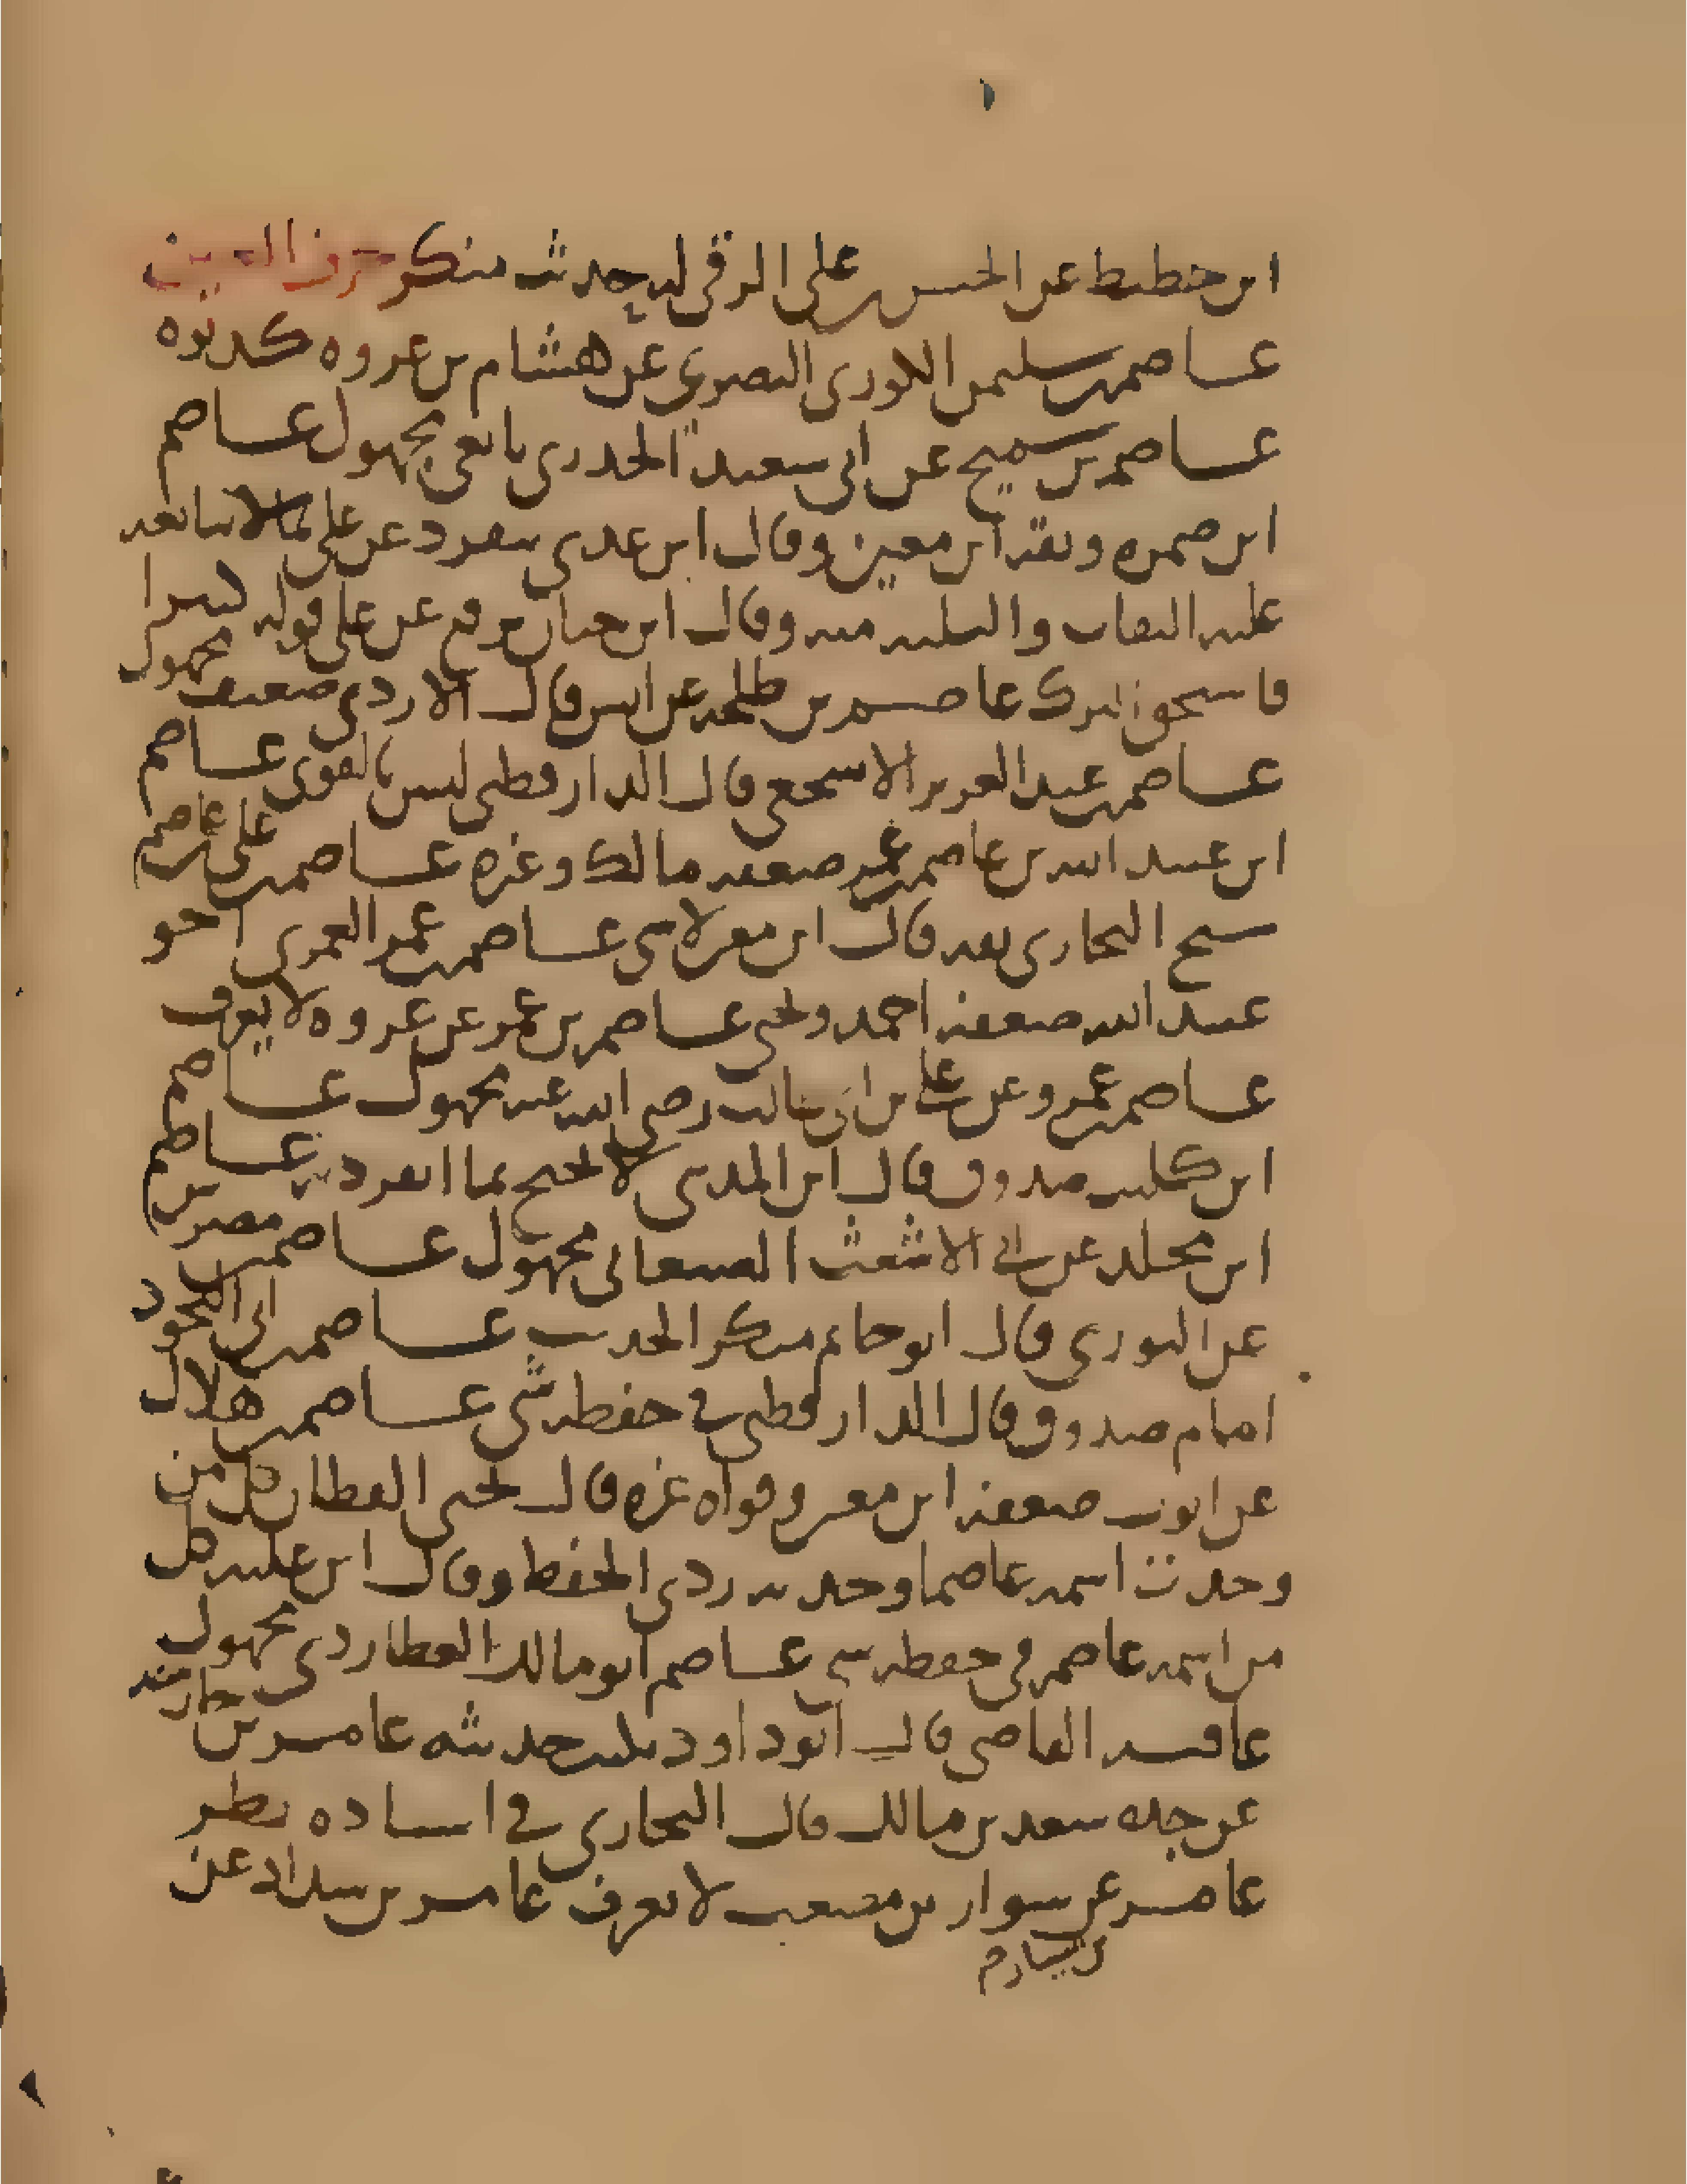 ابن خطيط عن الحسن بن علي الرقي له حديث منكر حرف العين
عاصم بن سليمن الكوزي البصري عن هشام بن عروه كذبوه
عاصم بن سميح عن ابي سعيد الخدري تابعي مجهول عاصم
ابن ضمره وثقه ابن معين وقال ابن عدي يتفرد عن علي بما لا يتابعه
عليه الثقات والبليه منه وقال ابن حبان يرفع عن علي قوله كثيرا
فاستحق الترك عاصم بن طلحه عن انس قال الازدي ضعيف مجهول
عاصم بن عبد العزيز الاشجعي قال الدارقطني ليس بالقوي عاصم
ابن عبيد الله بن عاصم بن عمر ضعفه مالك وغيره عاصم بن علي بن عاصم
شيخ البخاري ثقه قال ابن معين لا شي عاصم بن عمر العمري اخو
عبيد الله ضعفه احمد ويحيى عاصم بن عمر عن عروه لا يعرف
عاصم بن عمرو عن علي بن ابي طالب رضي الله عنه مجهول عاصم
ابن كليب صدوق قال ابن المديني لا يحتج بما انفرد به عاصم
ابن مخلد عن ابي الاشعث الصنعاني مجهول عاصم بن مضرس
عن الثوري قال ابو حاتم منكر الحديث عاصم بن ابي النجود
امام صدوق قال الدارقطني في حفظه شي عاصم بن هلال
عن ايوب ضعفه ابن معين وقواه غيره قال يحيى القطان كل من
وجدت اسمه عاصما وجدته ردي الحفظ وقال ابن عليه كل
من اسمه عاصم في حفظه شي عاصم ابو مالك العطاردي مجهول
عافيه القاضي قال ابو داود يكتب حديثه عامر بن خارجه
عن جده سعد بن مالك قال البخاري في اسناده نظر
عامر عن سوار بن مصعب لا يعرف عامر بن شداد عن
بن سيار م